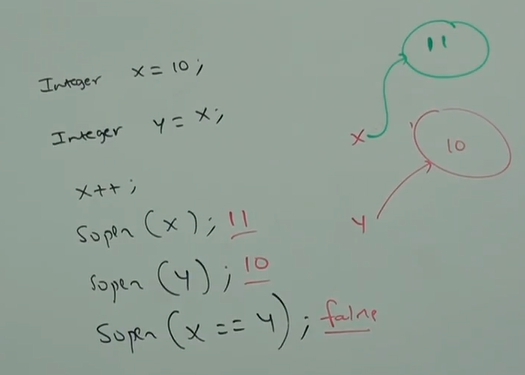 Integer x = 10;
Integer y = x;
x++;
Sopln (x); 11
Sopln (y); 10
Sopln (x == y); false
11
x
10
y